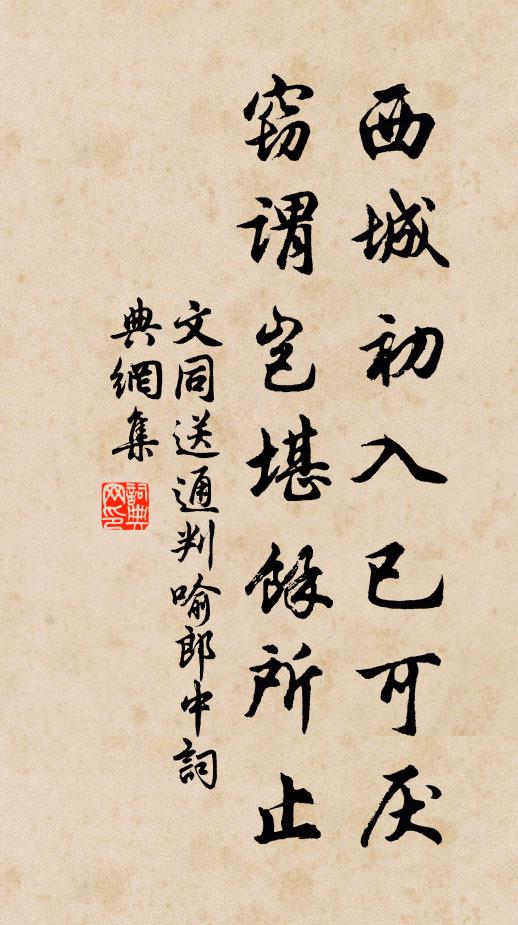 西城初入已可厌
窃谓岂堪馀所止
文同送通判喻郎中詞
典網集
詞典
网印